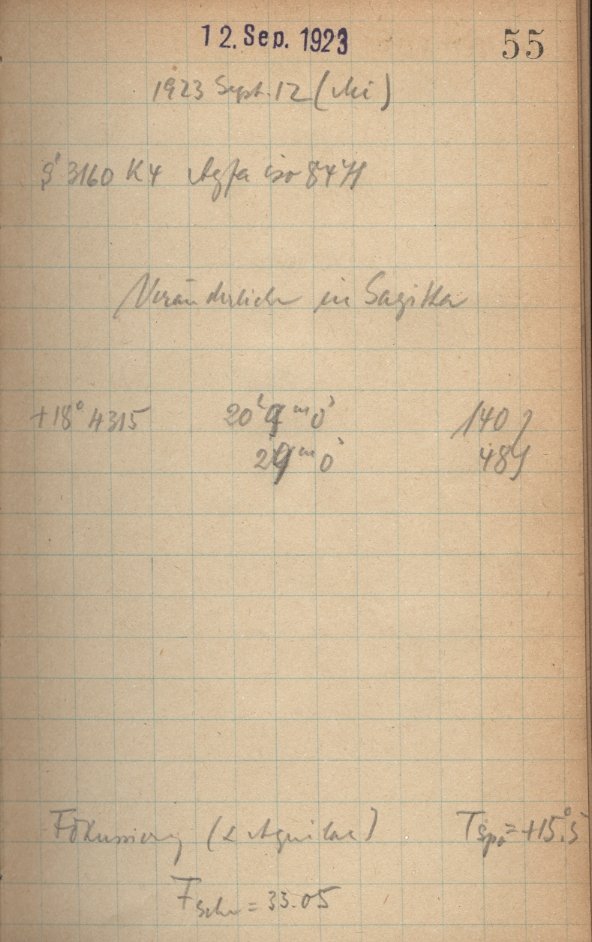 12. Sep. 1923
55
1923 Sept. 12 (Mi)
S 3160 K4 Agfa iso 8471
Veränderliche in Sagitta
+18° 4315 20 9ᵐ 0ˢ 140
29ᵐ 0ˢ 48
Fokussierung (α Aquilae) T = +15°.5
F = 33.05